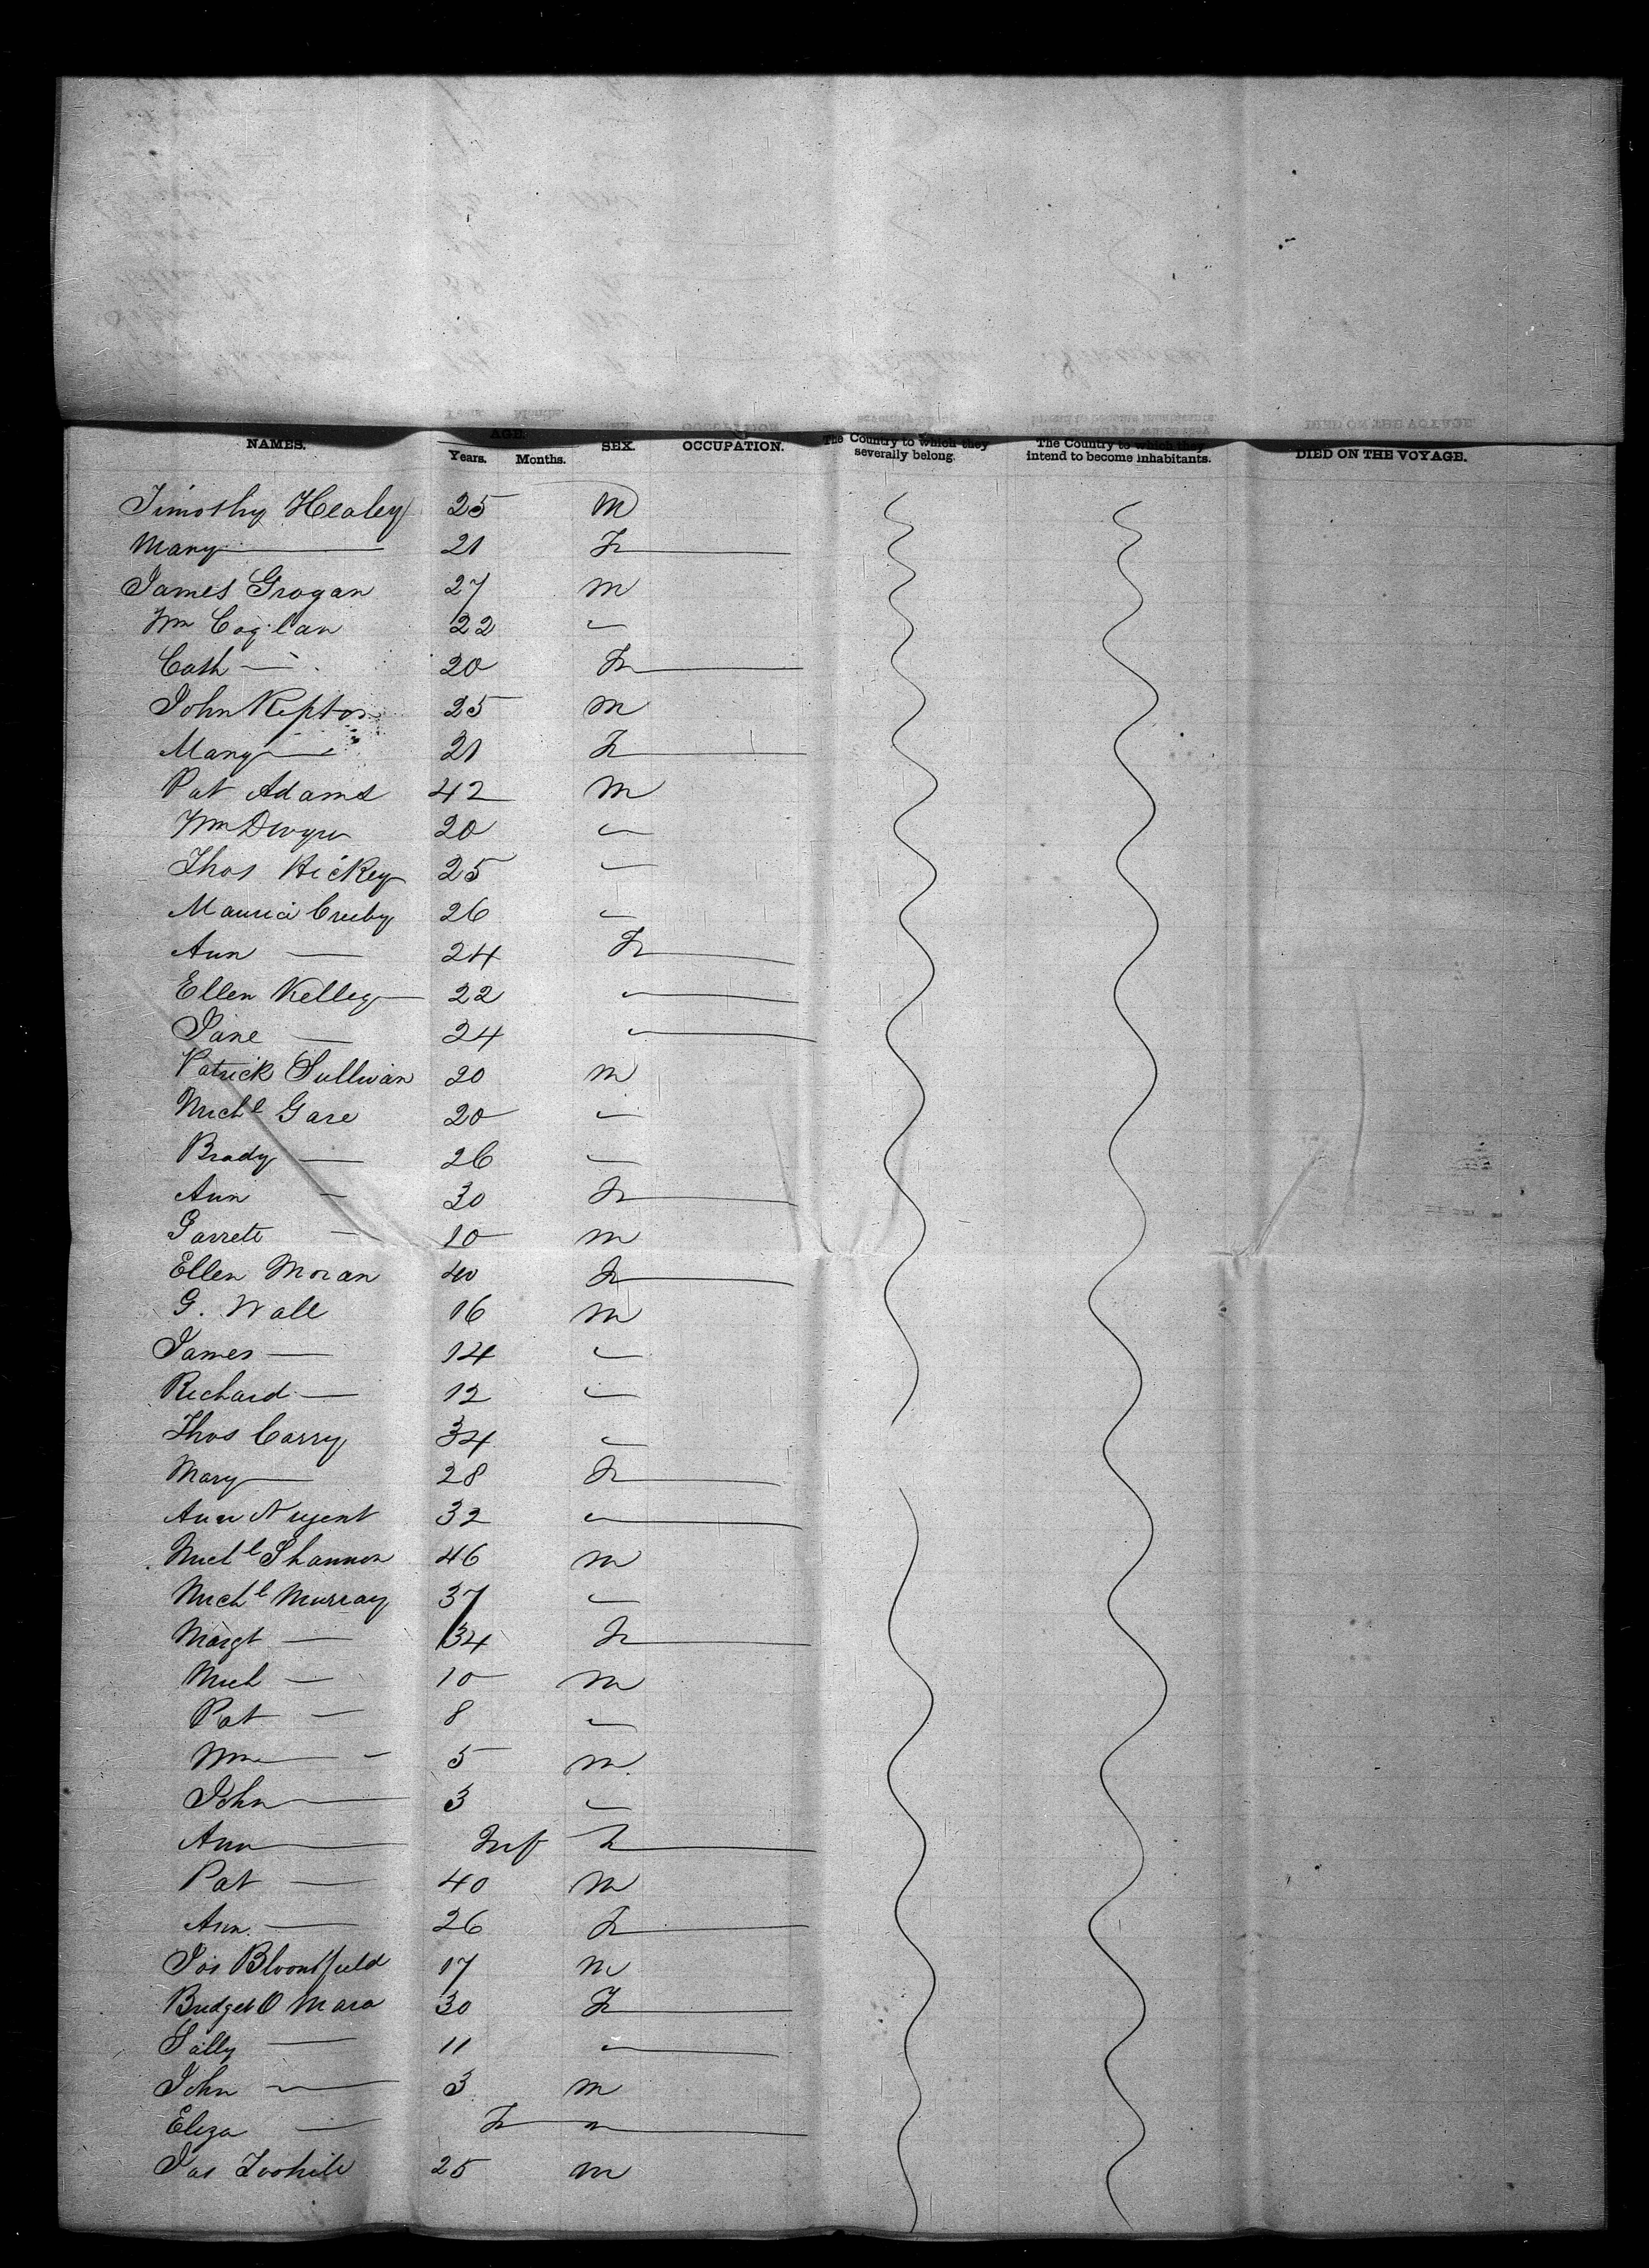 NAMES. AGE. SEX. OCCUPATION. The Country to which they severally belong. The Country to which they intend to become inhabitants. DIED ON THE VOYAGE.
Years. Months.
Timothy Healey 25 M
Mary — 21 F
James Grogan 27 m
Wm Coglan 22 "
Cath — 20 F
John Repton 25 m
Mary — 21 F
Pat Adams 42 m
Wm Dwyer 20 "
Thos Hickey 25 "
Maurice Creeby 26 "
Ann — 24 F
Ellen Kelley 22 "
Jane — 24 "
Patrick Sullivan 20 m
Michl Gare 20 "
Brady — 26 "
Ann — 30 F
Garrett — 10 m
Ellen Moran 40 F
G. Wall 16 m
James — 14 "
Richard — 12 "
Thos Carry 34 "
Mary — 28 F
Ann Nugent 32 "
Michl Shannon 46 m
Michl Murray 37 "
Margt — 34 F
Mich — 10 m
Pat — 8 "
Wm — 5 m
John — 3 "
Ann — Inf F
Pat — 40 m
Ann — 26 F
Jos Bloomfield 17 m
Bridget O Mara 30 F
Sally — 11 "
John — 3 m
Eliza —
Jas Toohill 25 m